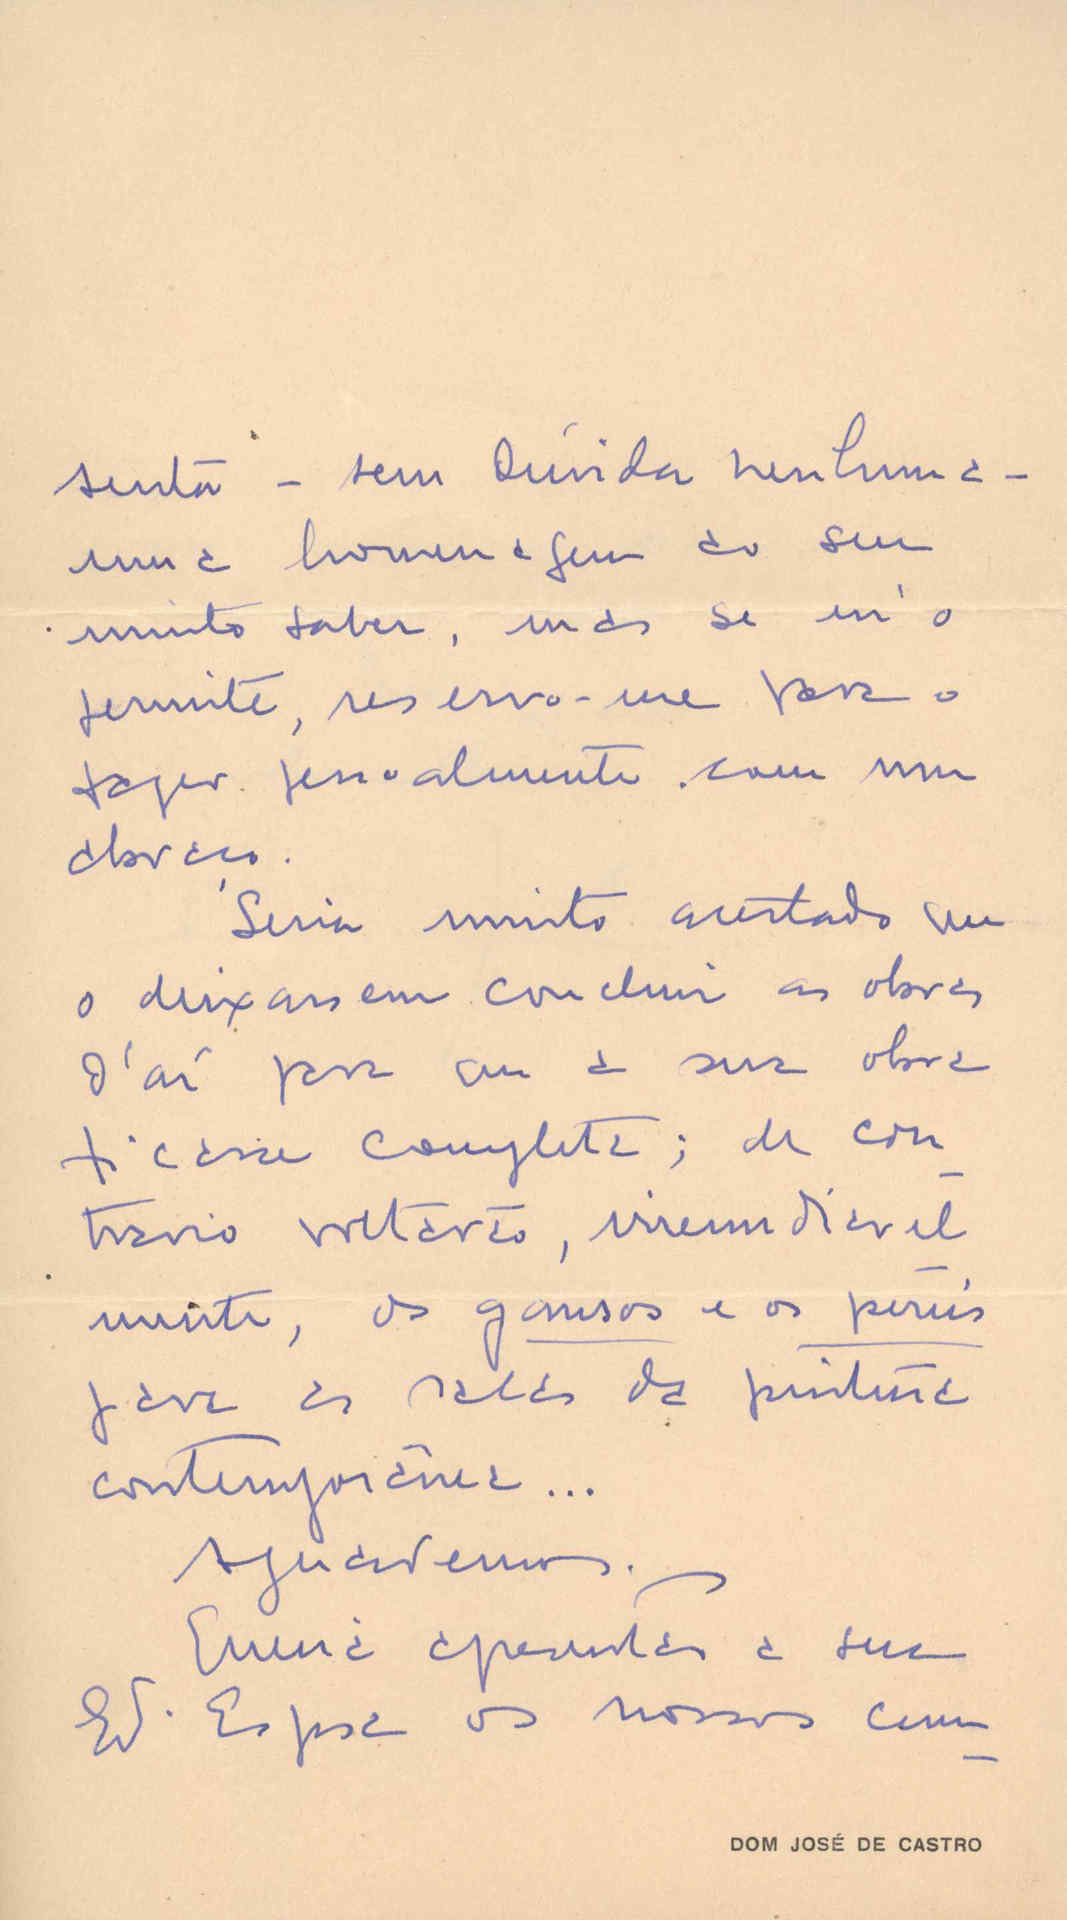 senta – sem dúvida nenhuma –
uma homenagem ao seu
muito saber, mas se m'o
permite, reservo-me para o
fazer pessoalmente com um
abraço.
Seria muito acertado que
o deixassem concluir as obras
d'aí para que a sua obra
ficasse completa; de con-
trario voltarão, irremediavel-
mente, os gansos e os perús
para as salas da pintura
contemporânea...
Aguardemos.
a sua
Espsa os nossos cum-
DOM JOSÉ DE CASTRO